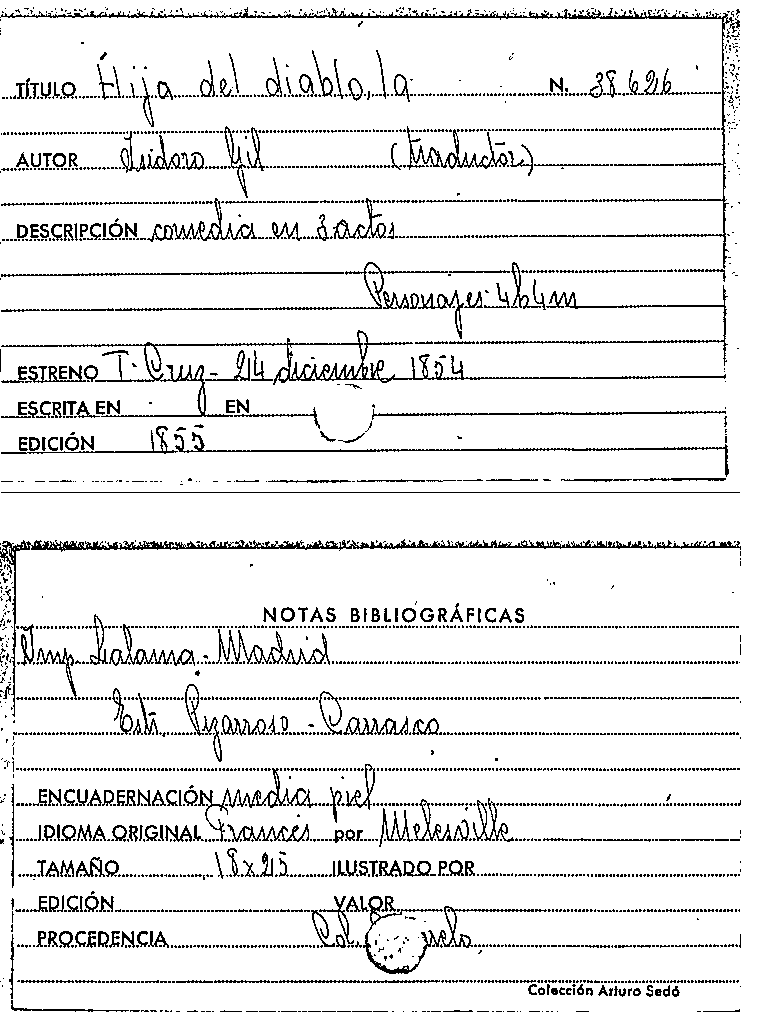 TÍTULO Hija del diablo, la N. 38626
AUTOR Isidoro Gil (traductor)
DESCRIPCIÓN comedia en 3 actos
Personajes: 4h4m
ESTRENO T. Cruz - 24 diciembre 1854
ESCRITA EN EN
EDICIÓN 1855
NOTAS BIBLIOGRÁFICAS
Imp. Lalama - Madrid
Estr. Pizarroso - Carrasco
ENCUADERNACIÓN media piel
IDIOMA ORIGINAL Francés por Melesville
TAMAÑO 18x25 ILUSTRADO POR
EDICIÓN VALOR
PROCEDENCIA Col.
Colección Arturo Sedó